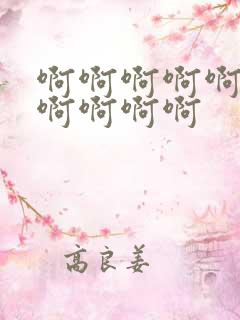 啊啊啊啊啊
啊啊啊啊
高良姜